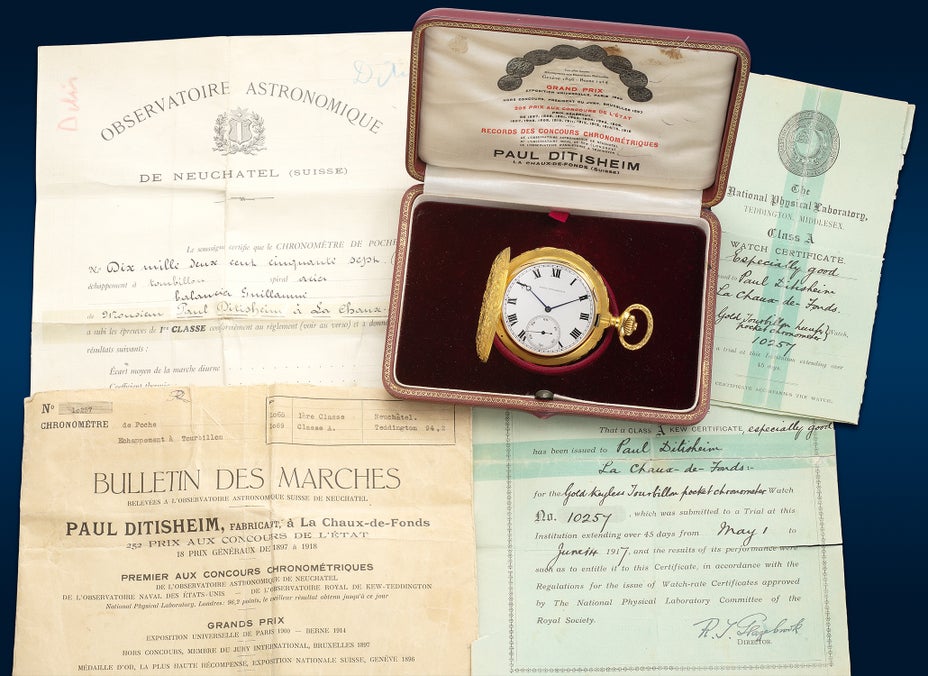 Ditis
Diti
OBSERVATOIRE ASTRONOMIQUE
DE NEUCHATEL (SUISSE)
Le soussigné certifie que le CHRONOMÈTRE DE POCHE
No Dix mille deux cent cinquante sept.
échappement à tourbillon spiral acier
balancier Guillaume
de Monsieur Paul Ditisheim à La Chaux-
a subi les épreuves de 1re CLASSE conformément au règlement (voir au verso) et a donné
résultats suivants :
Écart moyen de la marche diurne
Coefficient thermique
GRAND PRIX
EXPOSITION UNIVERSELLE, PARIS 1900
HORS CONCOURS, PRÉSIDENT DU JURY, BRUXELLES 1897
PRIX AUX CONCOURS DE L'ÉTAT
RECORDS DES CONCOURS CHRONOMÉTRIQUES
PAUL DITISHEIM
LA CHAUX-DE-FONDS (SUISSE)
The
National Physical Laboratory,
TEDDINGTON, MIDDLESEX.
Class A
WATCH CERTIFICATE.
Especially good
Paul Ditisheim
La Chaux-de-Fonds.
Gold Tourbillon Watch,
pocket chronometer
10257
a trial at this Institution extending over
45 days.
CERTIFICATE ACCOMPANIES THE WATCH.
No 10257
CHRONOMÈTRE de Poche
Echappement à Tourbillon
1ère Classe Neuchâtel.
Classe A. Teddington 94,2
BULLETIN DES MARCHES
RELEVÉES A L'OBSERVATOIRE ASTRONOMIQUE SUISSE DE NEUCHATEL
PAUL DITISHEIM, FABRICANT, à La Chaux-de-Fonds
252 PRIX AUX CONCOURS DE L'ÉTAT
18 PRIX GÉNÉRAUX DE 1897 à 1918
PREMIER AUX CONCOURS CHRONOMÉTRIQUES
DE L'OBSERVATOIRE ASTRONOMIQUE DE NEUCHATEL
DE L'OBSERVATOIRE NAVAL DES ÉTATS-UNIS — DE L'OBSERVATOIRE ROYAL DE KEW-TEDDINGTON
National Physical Laboratory, Londres: 96,2 points, le meilleur résultat obtenu jusqu'à ce jour
GRANDS PRIX
EXPOSITION UNIVERSELLE DE PARIS 1900 — BERNE 1914
HORS CONCOURS, MEMBRE DU JURY INTERNATIONAL, BRUXELLES 1897
MÉDAILLE D'OR, LA PLUS HAUTE RÉCOMPENSE, EXPOSITION NATIONALE SUISSE, GENÈVE 1896
That a CLASS A KEW CERTIFICATE, especially good
has been issued to Paul Ditisheim
La Chaux-de-Fonds:-
for the Gold Keyless Tourbillon pocket chronometer Watch
No. 10257, which was submitted to a Trial at this
Institution extending over 45 days from May 1 to
June 14 1917, and the results of its performance were
such as to entitle it to this Certificate, in accordance with the
Regulations for the issue of Watch-rate Certificates approved
by The National Physical Laboratory Committee of the
Royal Society.
R. T. Glazebrook
DIRECTOR.